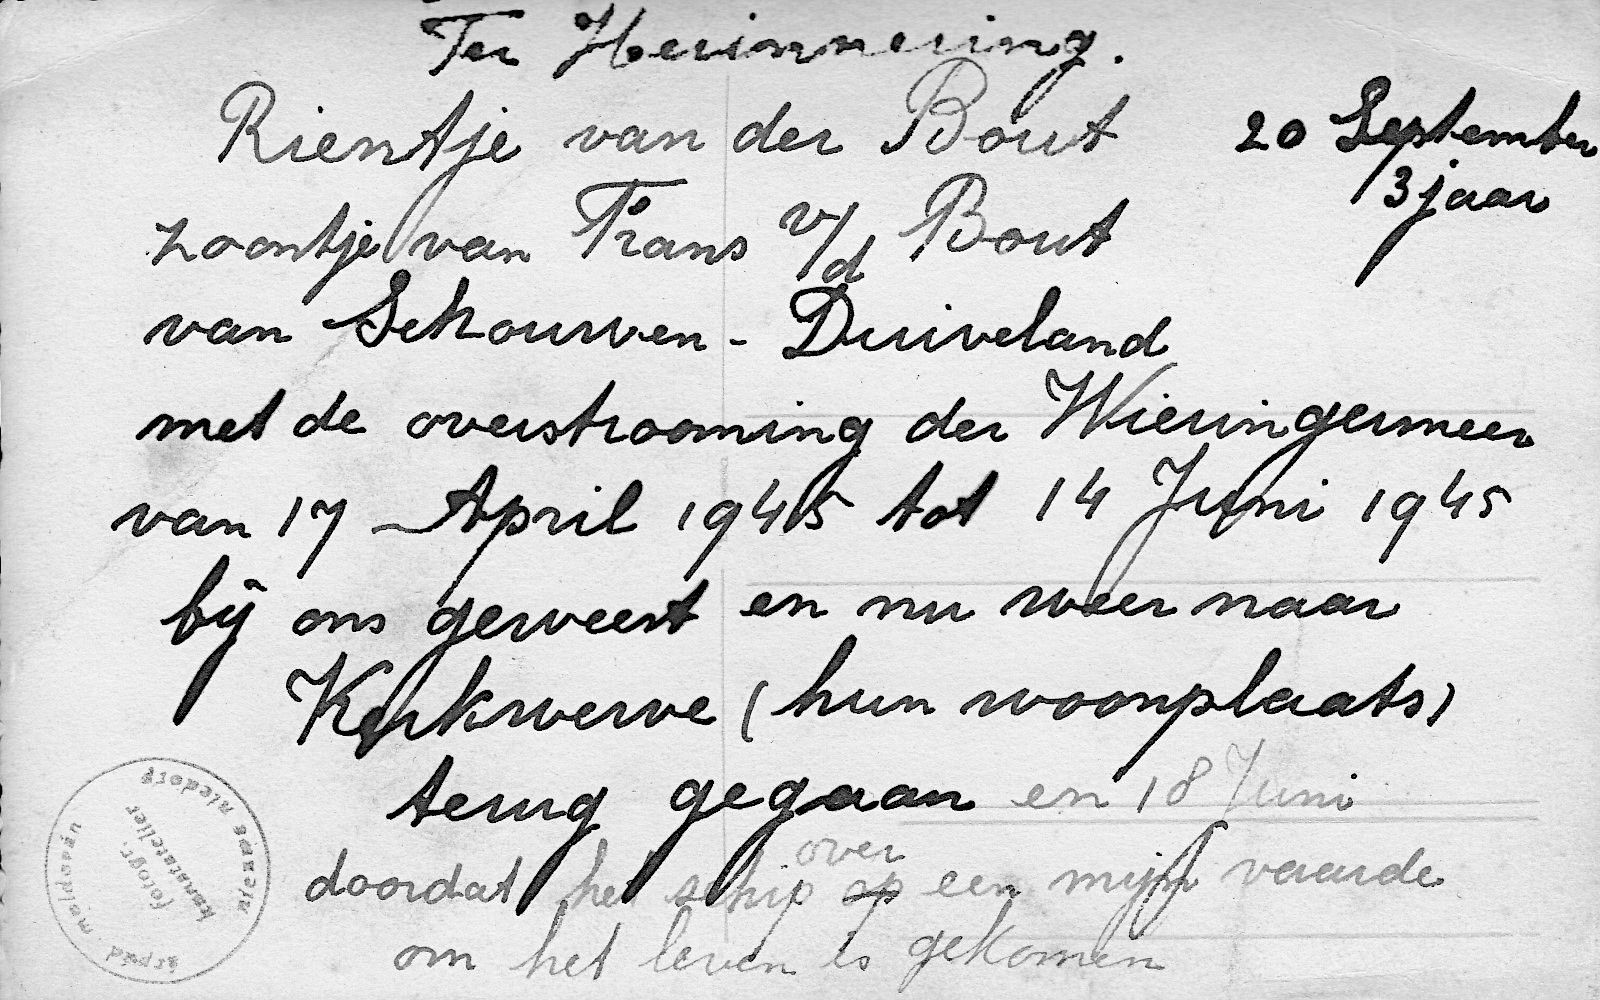 Ter Herinnering.
Rientje van der Bout
20 September
3 jaar
zoontje van Frans v/d Bout
van Schouwen - Duiveland
met de overstrooming der Wieringermeer
van 17 April 1945 tot 14 Juni 1945
bij ons geweest en nu weer naar
Kerkwerve (hun woonplaats)
terug gegaan en 18 Juni
over
doordat het schip op een mijn vaarde
om het leven is gekomen
fotogr.
kunstatelier
nieuwe niedorp